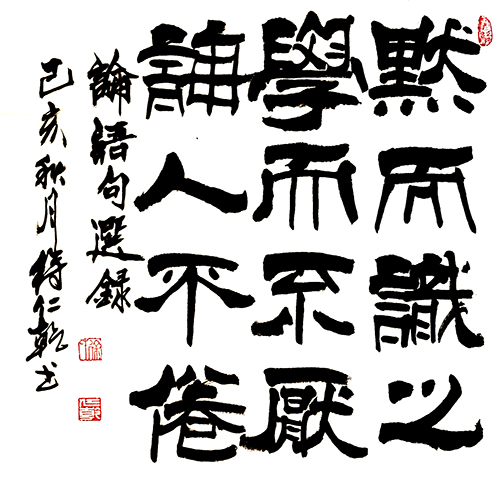 默而識之
學而不厭
誨人不倦
論語句選錄
己亥秋月仁乾书